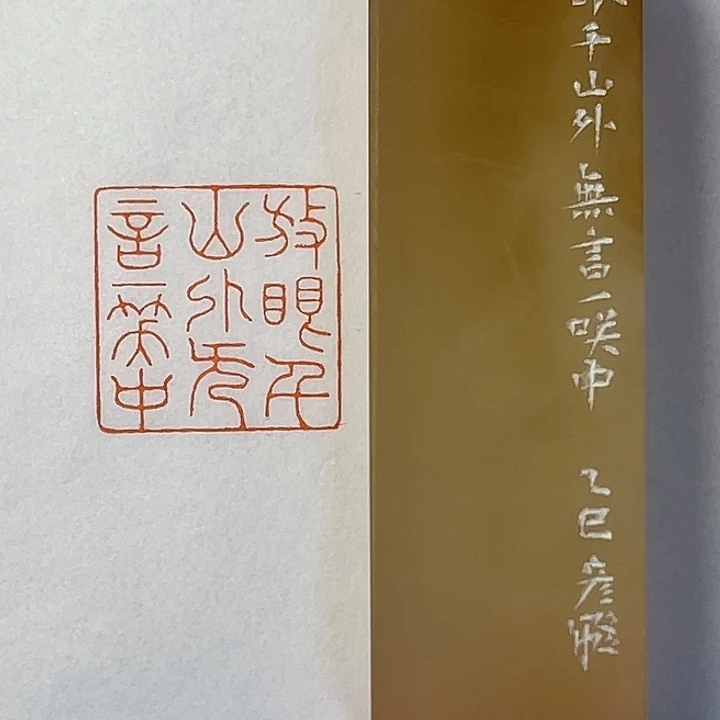 放眼千
山外无
言一笑中
千山外 無言一咲中 乙巳 彦